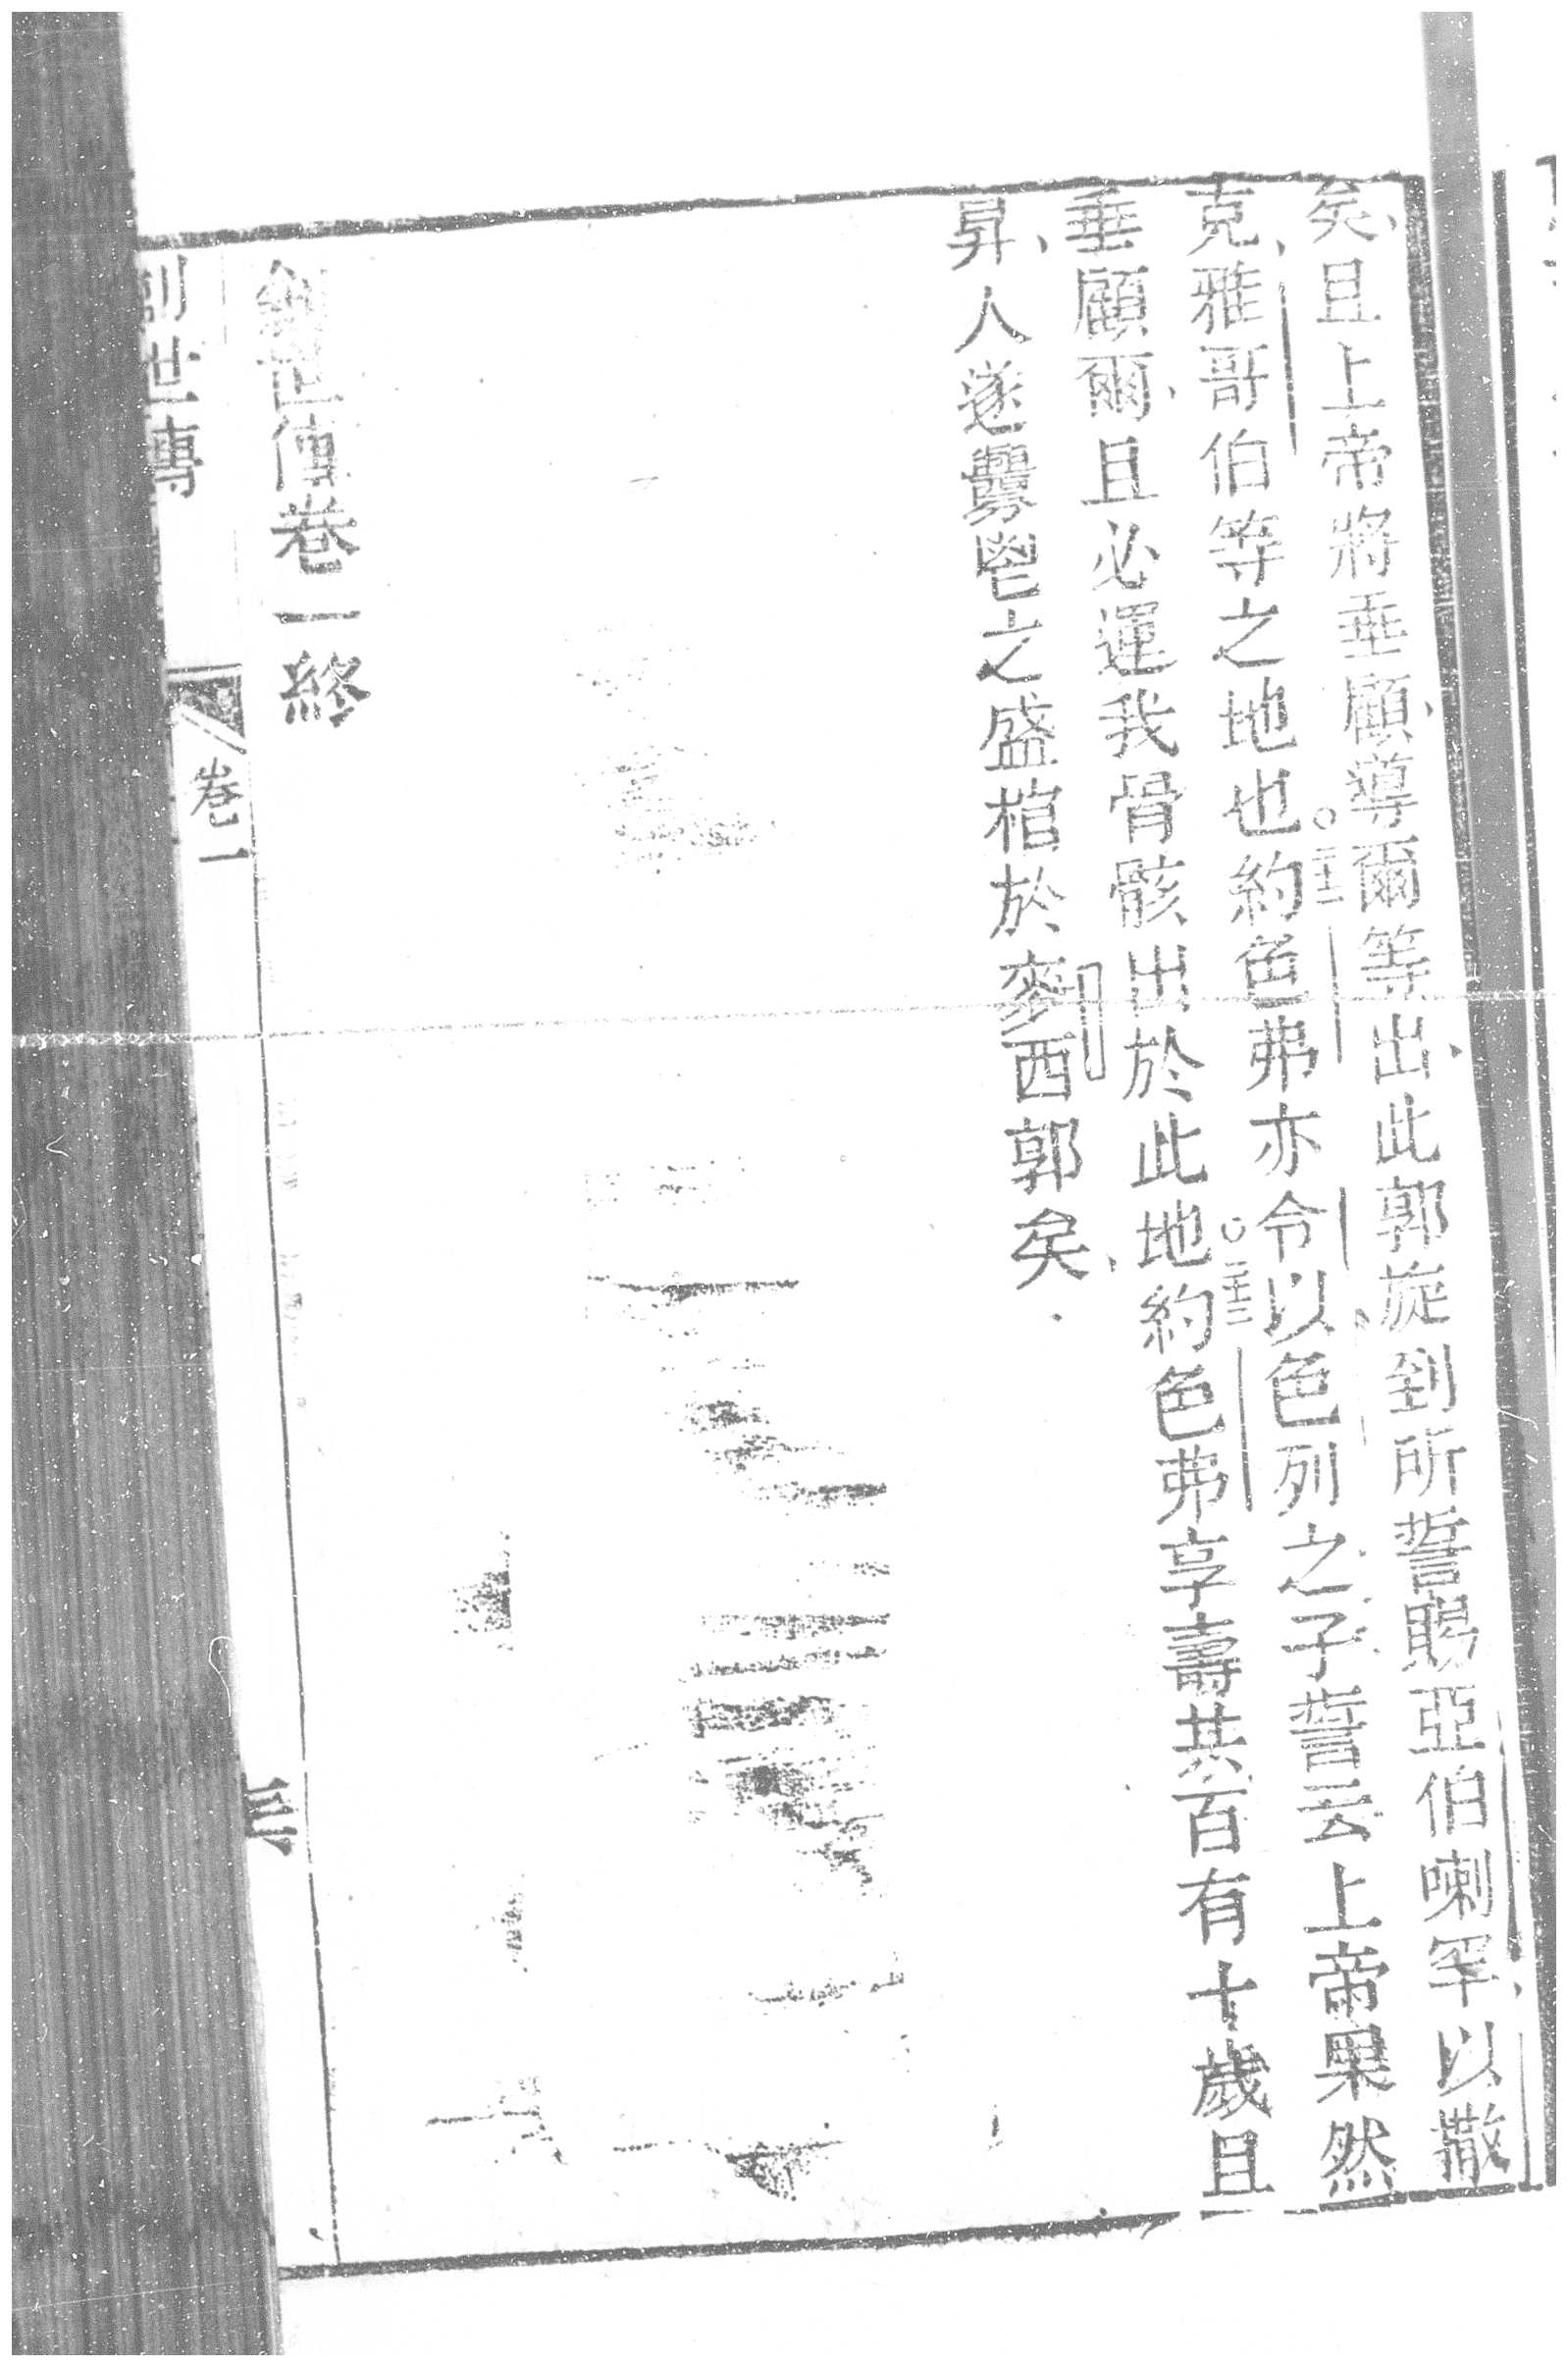 矣、且上帝將垂顧、導爾等出、此郭旋到所誓賜亞伯喇罕、以撒
克、雅哥伯等之地也。二十五約色弗亦令以色列之子誓云上帝果然
垂顧爾、且必運我骨骸出於此地。二十六約色弗享壽共百有十歲且
昇、人遂釁鬯之盛棺於麥西郭矣、
創世傳卷一終
創世傳 卷一